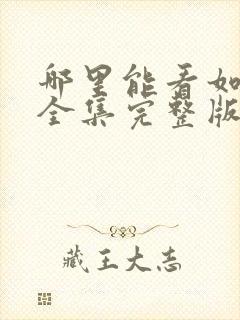 哪里能看如
全集完整版
藏王大志